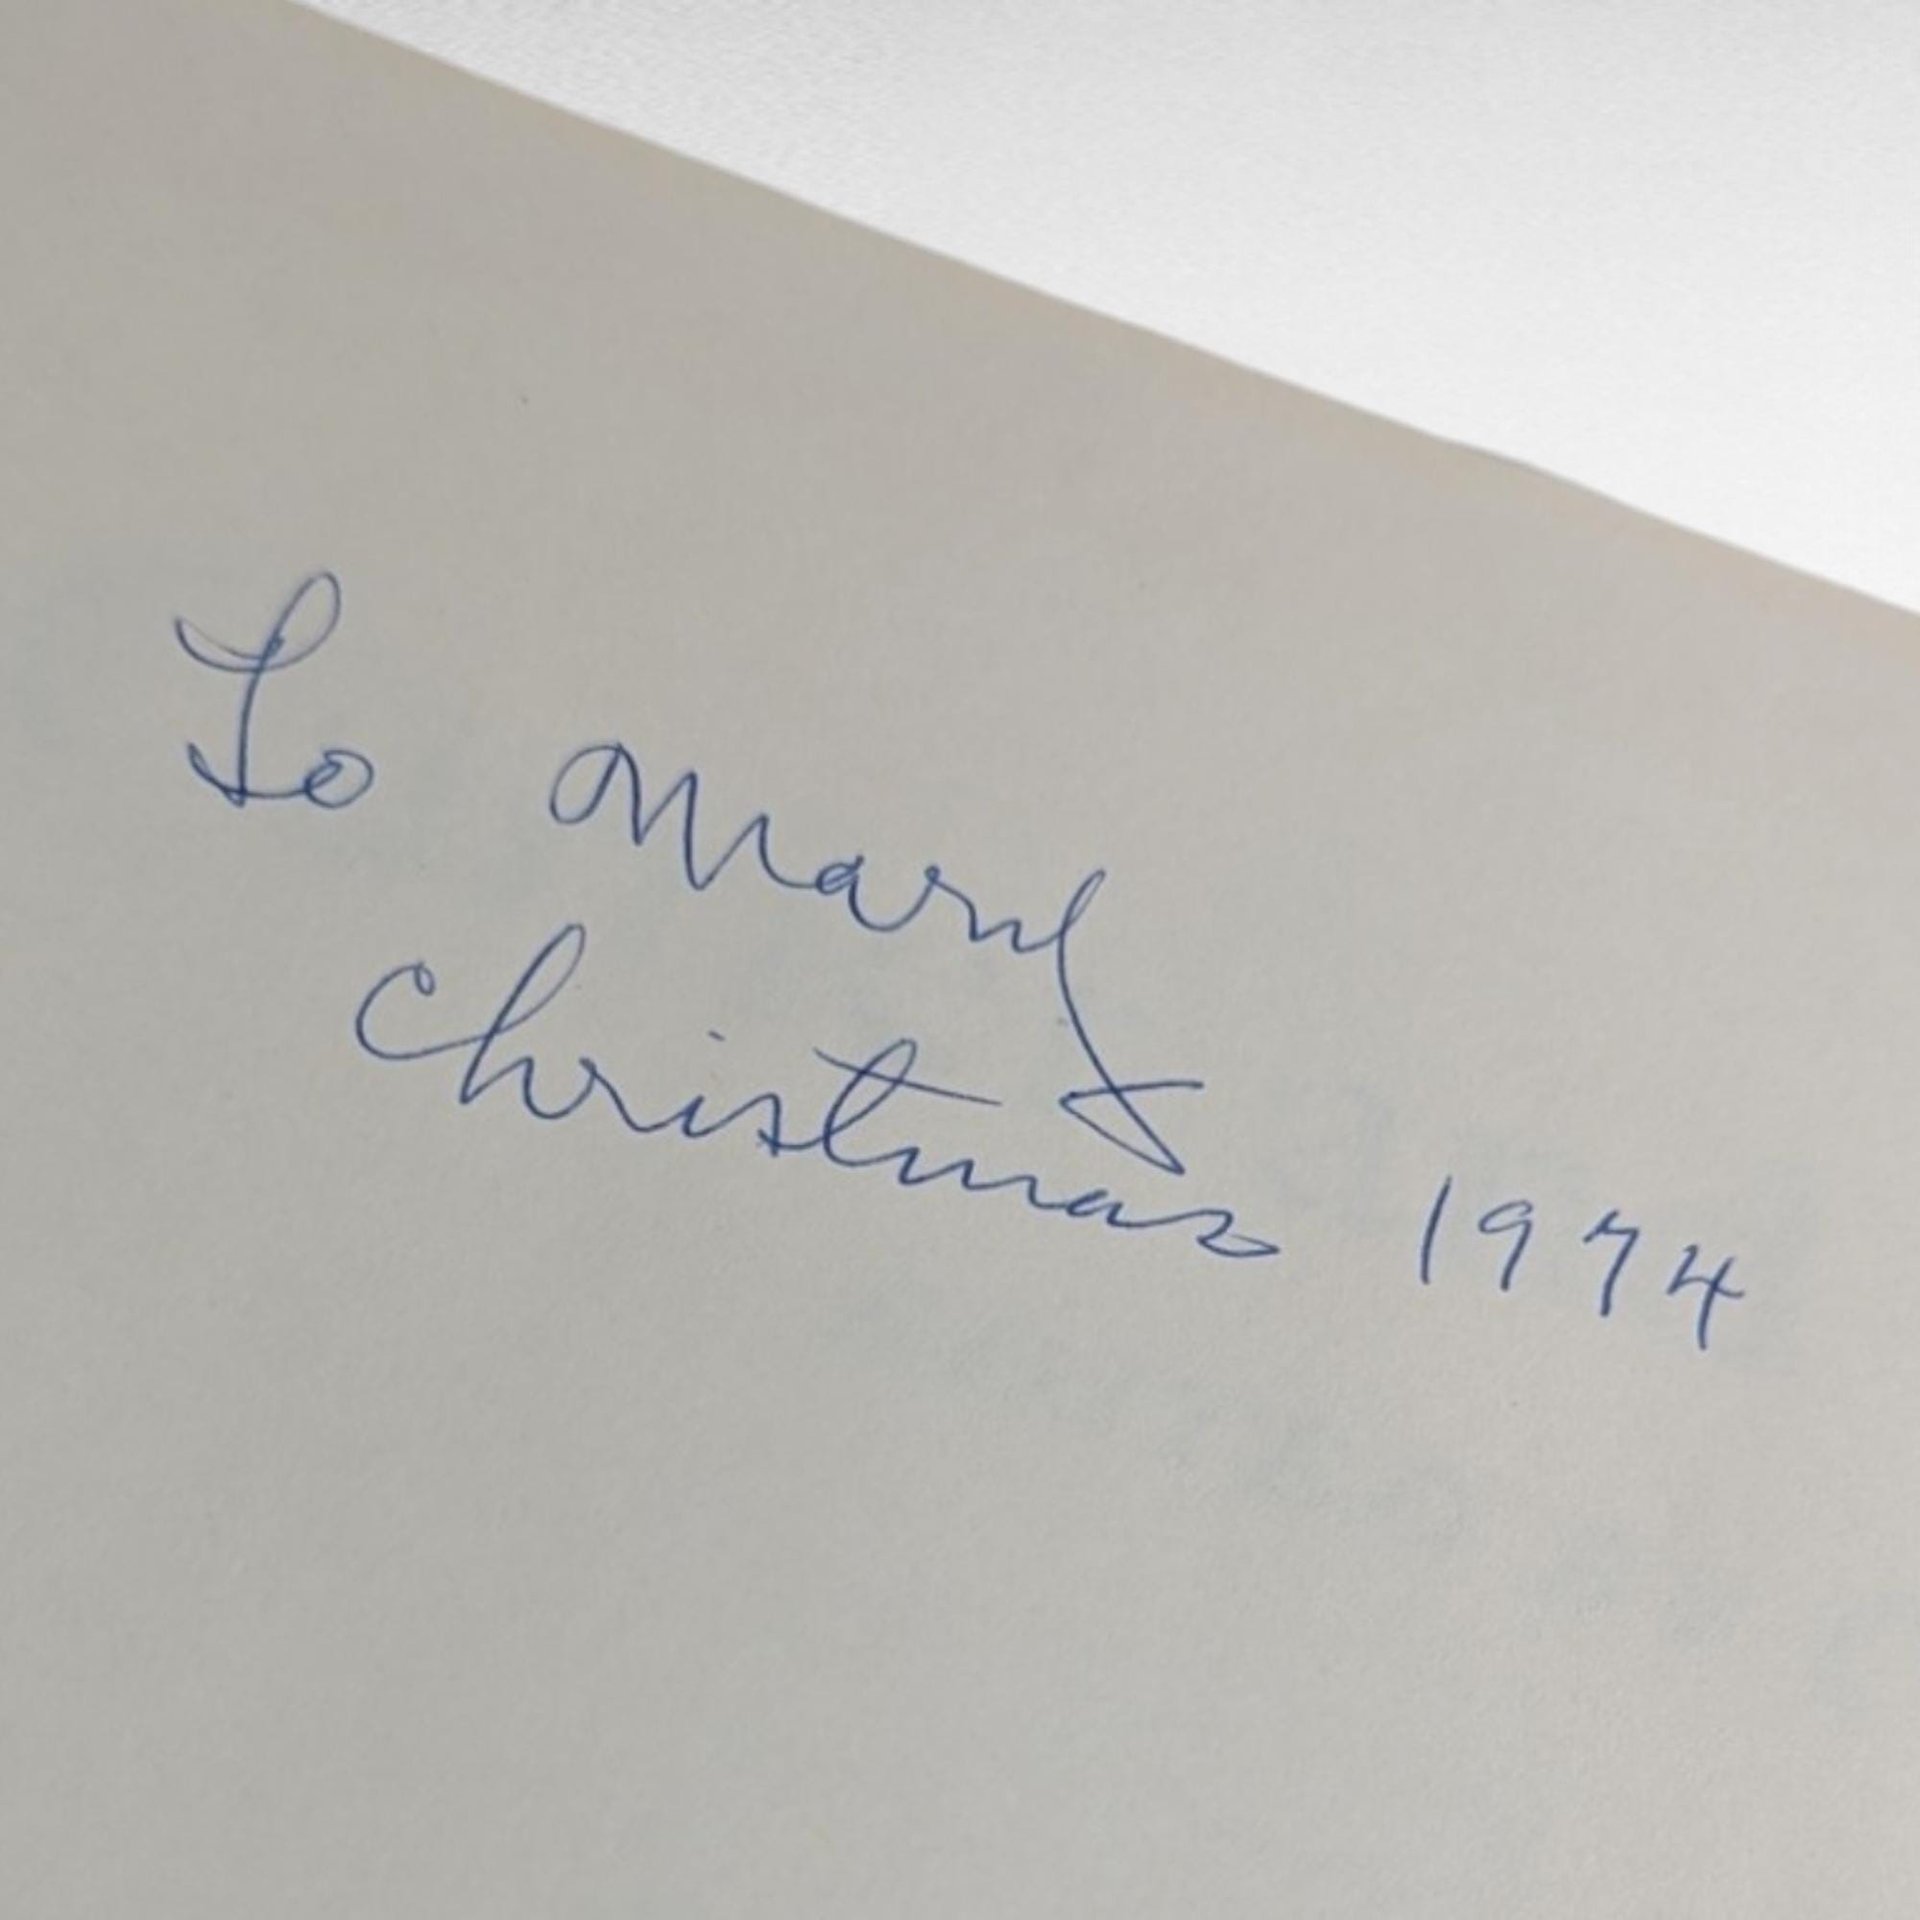 To Mary
Christmas 1974